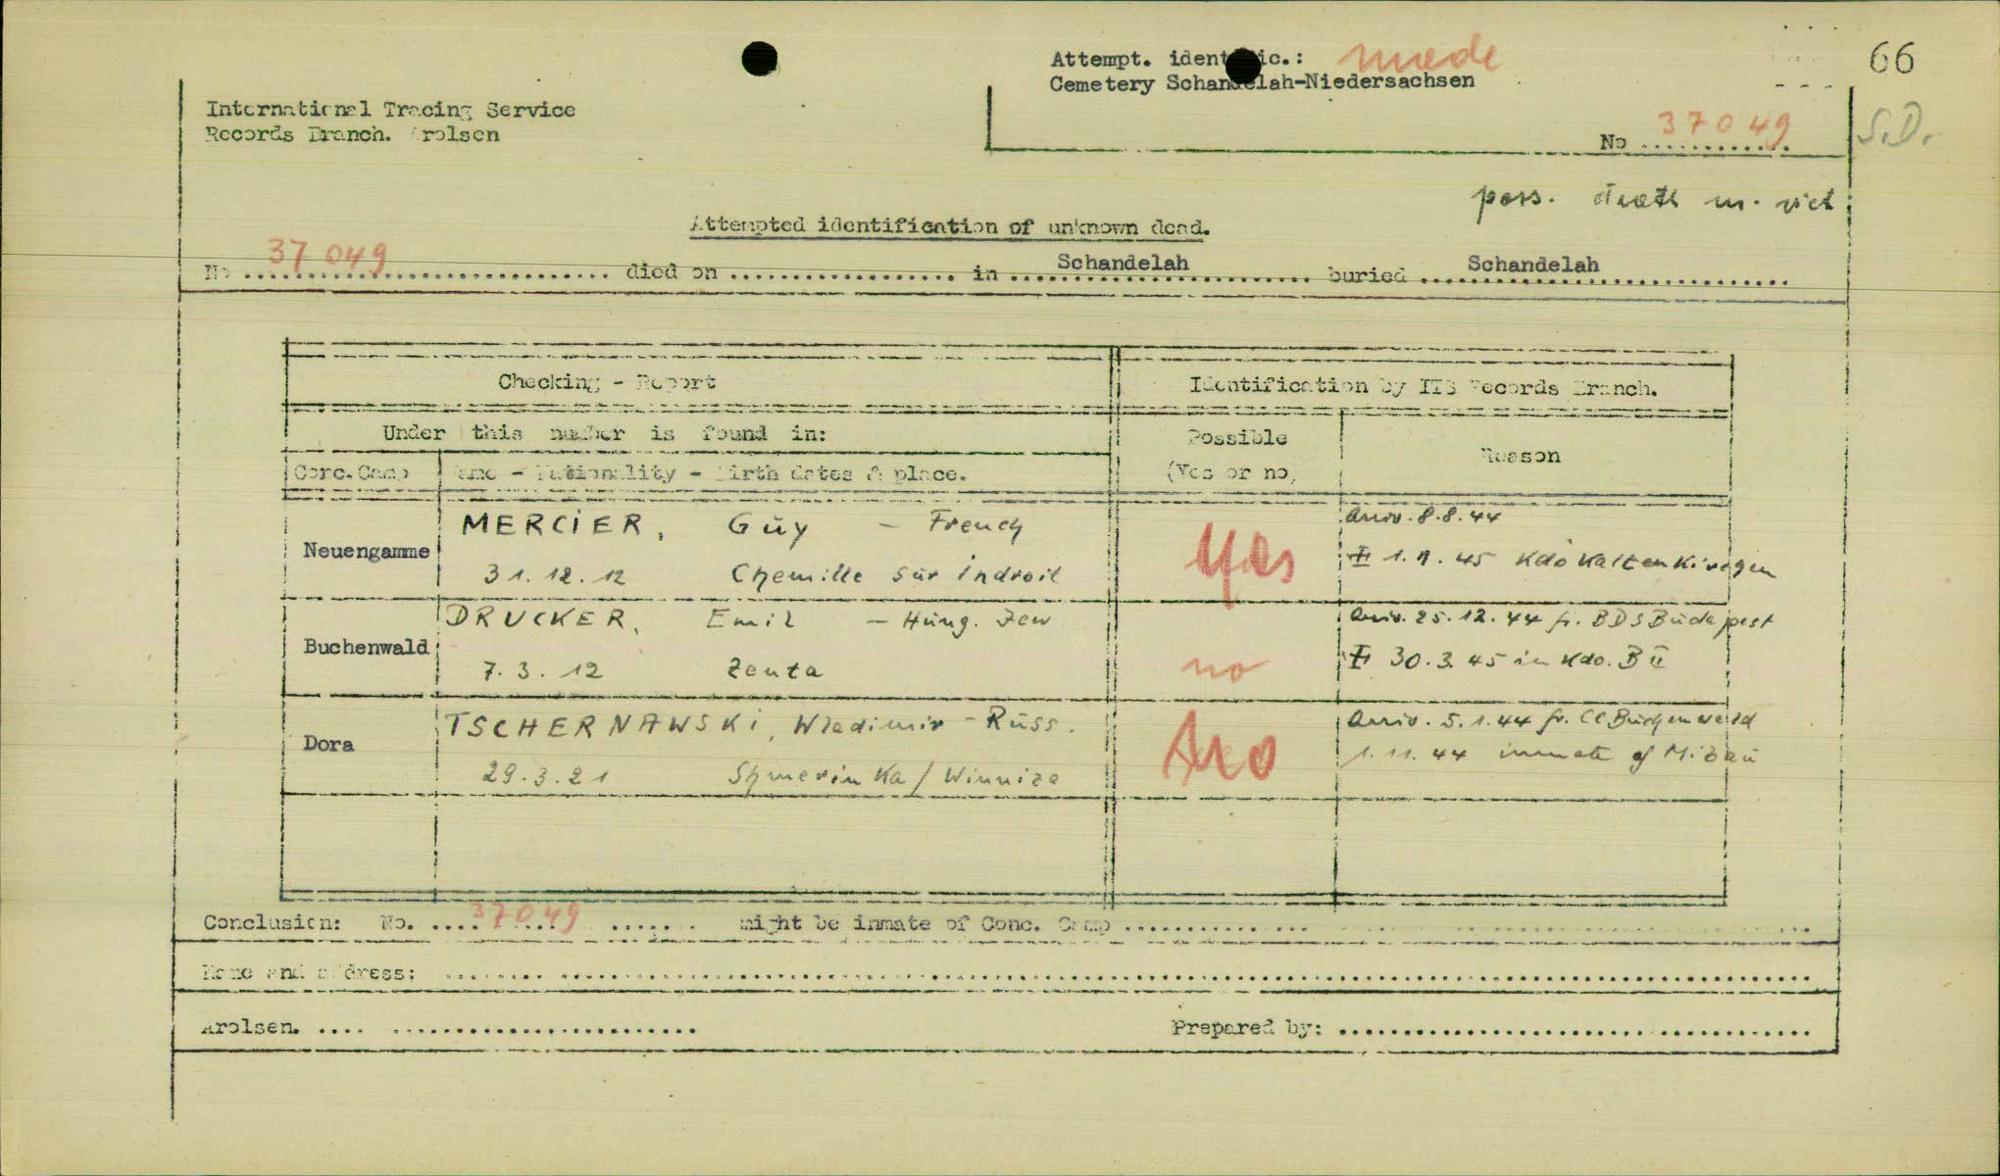 66
Attempt. identific.: made
Cemetery Schandelah-Niedersachsen
International Tracing Service
Records Branch. Arolsen
No 37049
S.D.
poss. death m. vict.
Attempted identification of unknown dead.
No 37 049 died on ........ in Schandelah buried Schandelah
Checking - Report
Identification by ITS Records Branch.
Under this number is found in:
Possible
(Yes or no)
Reason
Conc.Camp
Name - Nationality - Birth dates & place.
Neuengamme
MERCIER, Guy - French
31.12.12 Chemille sur Indroit
Yes
Arriv. 8.8.44
1. 45 Kdo Kaltenkirchen
Buchenwald
DRUCKER, Emil - Hung. Jew
7.3.12 Zenta
no
Arriv. 25.12.44 fr. BDS Budapest
30.3.45 in Kdo. B II
Dora
TSCHERNAWSKI, Wladimir - Russ.
29.3.21 Shmerinka / Winniza
no
Arriv. 5.1.44 fr. CC Buchenwald
1.11.44 inmate of Mibau
Conclusion: No. 37049 might be inmate of Conc. Camp ........
Name and address: ........
Arolsen. ........
Prepared by: ........